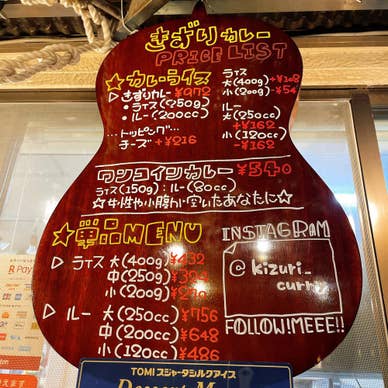 きずりカレー
PRICE LIST
☆カレーライス
▷きずりカレー ¥972
・ライス(250g)
・ルー(200cc)
...トッピング...
チーズ +¥216
ライス
大(400g) +¥108
小(200g) -¥54
ルー
大(250cc)
+¥162
小(120cc)
-¥162
ワンコインカレー ¥540
ライス(150g):ルー(80cc)
☆女性や小腹が空いたあなたに☆
★単品MENU
▷ライス 大(400g) ¥432
中(250g) ¥324
小(200g) ¥270
▷ルー 大(250cc) ¥756
中(200cc) ¥648
小(120cc) ¥486
INSTAGRAM
@kizuri_
curry
FOLLOW!MEEE!!
R Pay
えます
TOMIZスジャータシルクアイス